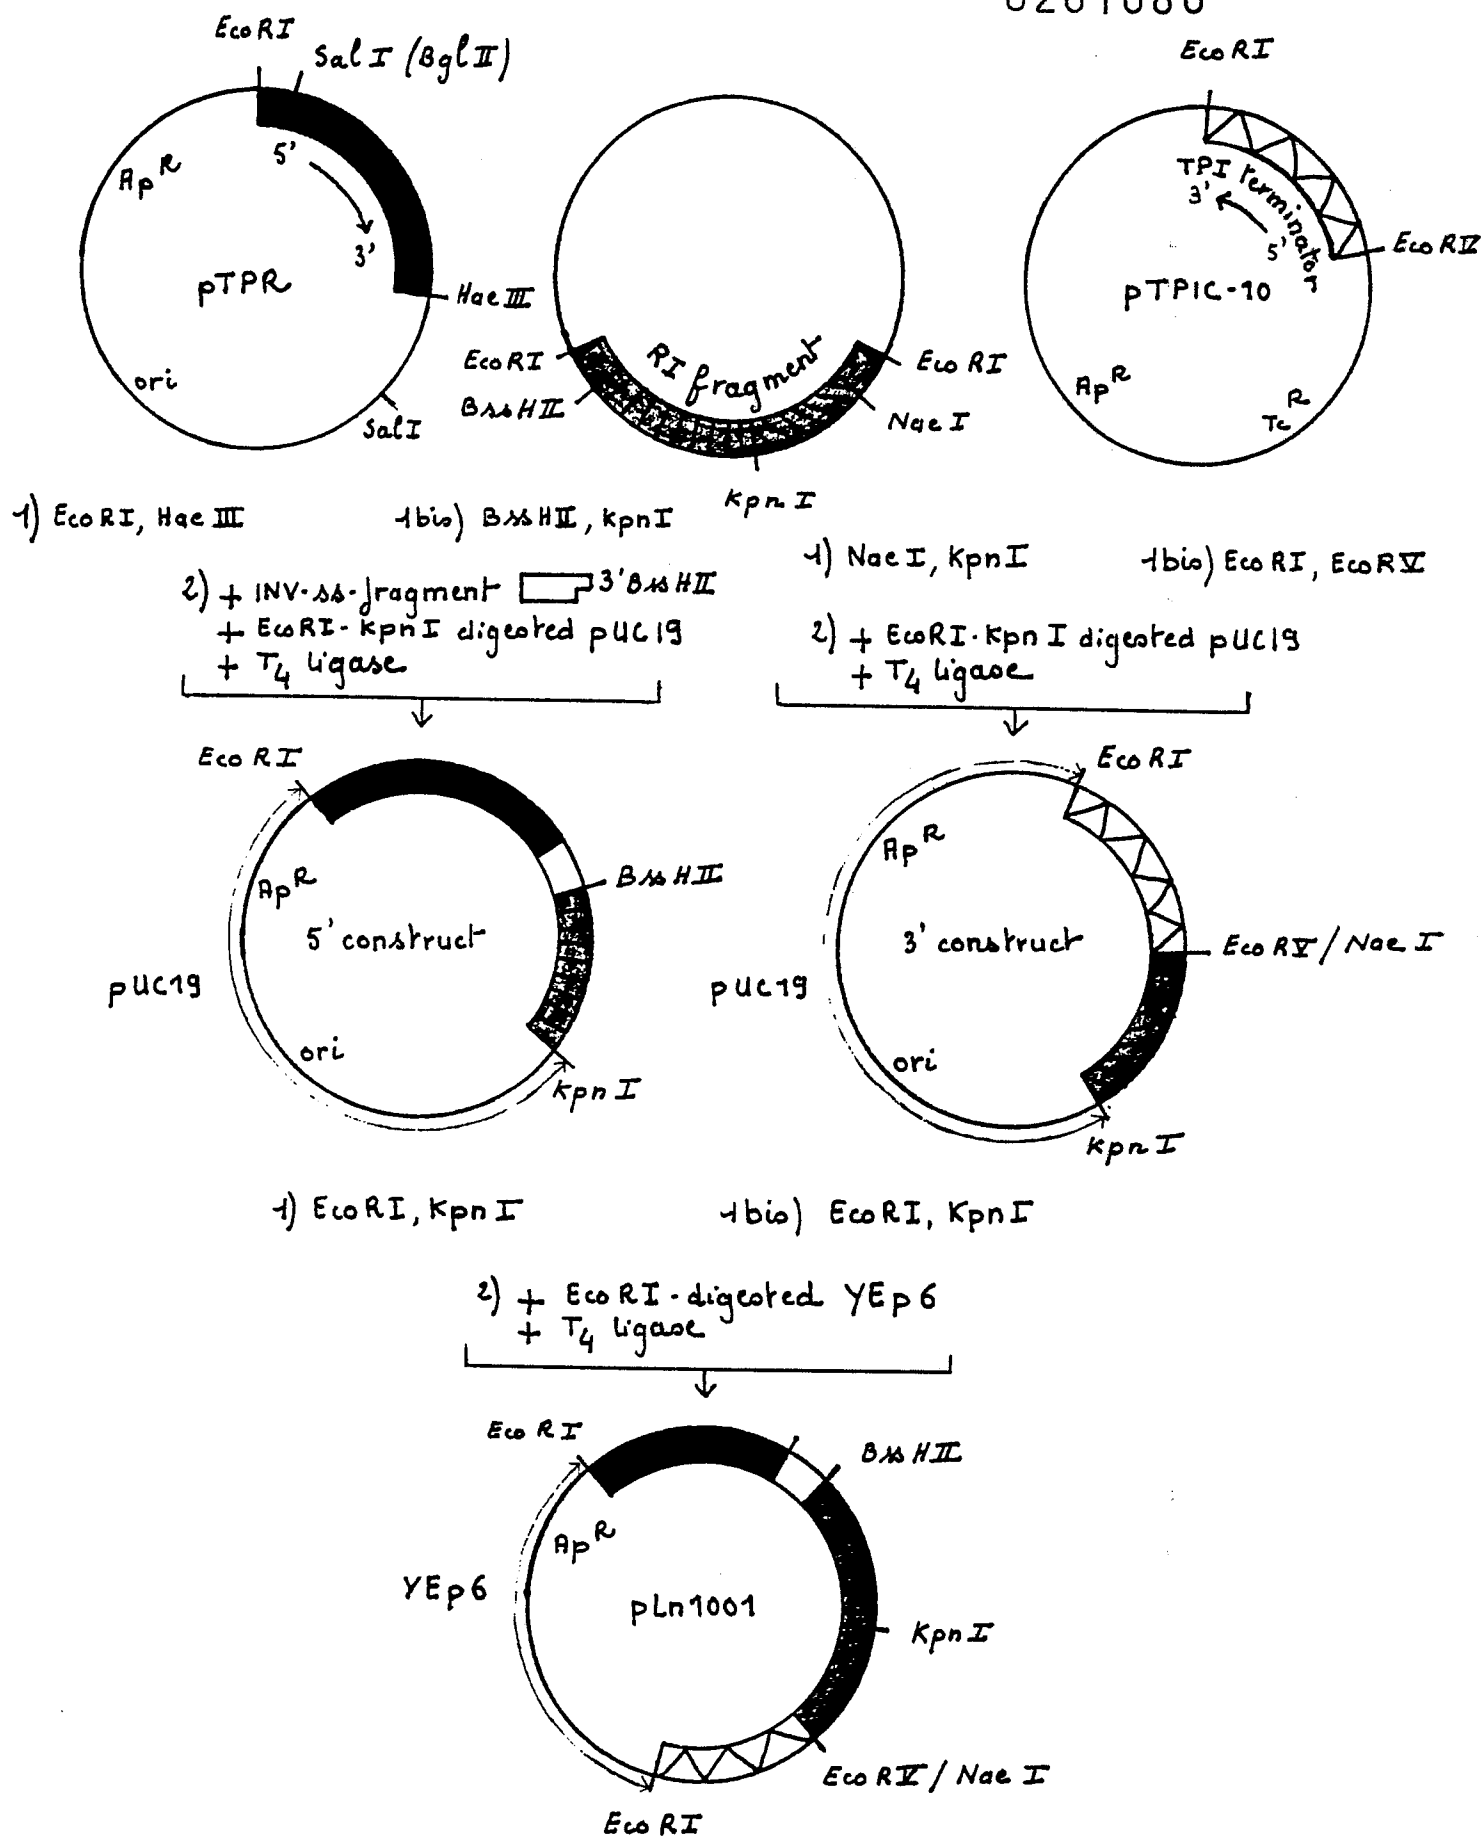 EcoRI
Sal I (Bgl II)
Ap R
5'
3'
pTPR
Hae III
ori
Sal I
EcoRI
BssHII
RI fragment
EcoRI
Nae I
Kpn I
EcoRI
TPI terminator
3'
5'
EcoRV
pTPIC-10
Ap R
Tc R
1) EcoRI, Hae III
1bis) BssHII, KpnI
2) + INV-ss-fragment 3'BssHII
+ EcoRI-KpnI digested pUC19
+ T4 ligase
1) NaeI, KpnI
1bis) EcoRI, EcoRV
2) + EcoRI-KpnI digested pUC19
+ T4 ligase
EcoRI
BssHII
Ap R
5' construct
pUC19
ori
KpnI
EcoRI
Ap R
3' construct
EcoRV/NaeI
pUC19
ori
KpnI
1) EcoRI, KpnI
1bis) EcoRI, KpnI
2) + EcoRI-digested YEp6
+ T4 ligase
EcoRI
BssHII
Ap R
YEp6
pLn1001
KpnI
EcoRV/NaeI
EcoRI